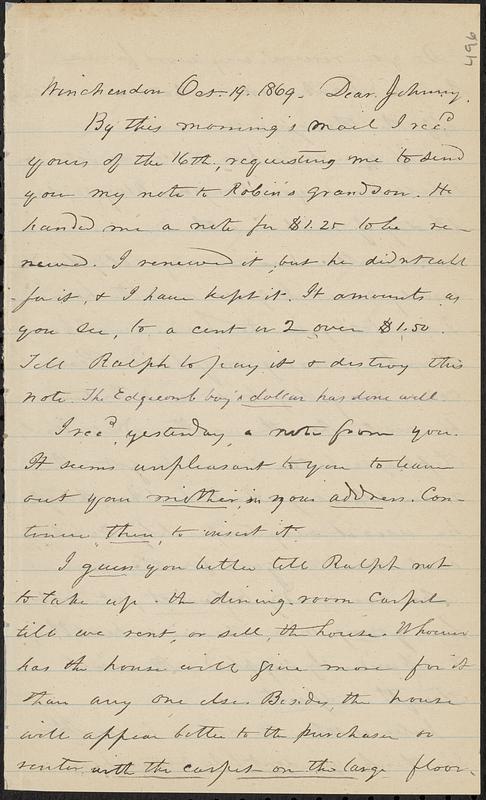 496
Winchendon Oct. 19. 1869. Dear Johnny,
By this morning's mail I rec.d
yours of the 16th, requesting me to send
you my note to Robin's grandson. He
handed me a note for $1.25 to be re-
newed. I renewed it, but he didn't call
for it, & I have kept it. It amounts, as
you see, to a cent or 2 over $1.50.
Tell Ralph to pay it & destroy this
note. The Edgecomb boy's dollar has done well.
I rec.d, yesterday, a note from you.
It seems unpleasant to you to leave
out your mother, in your address. Con-
tinue, then, to insert it.
I guess you better tell Ralph not
to take up the dining-room carpet
till we rent, or sell, the house. Whoever
has the house will give more for it
than any one else. Besides, the house
will appear better to the purchaser or
renter with the carpet on the large floor.